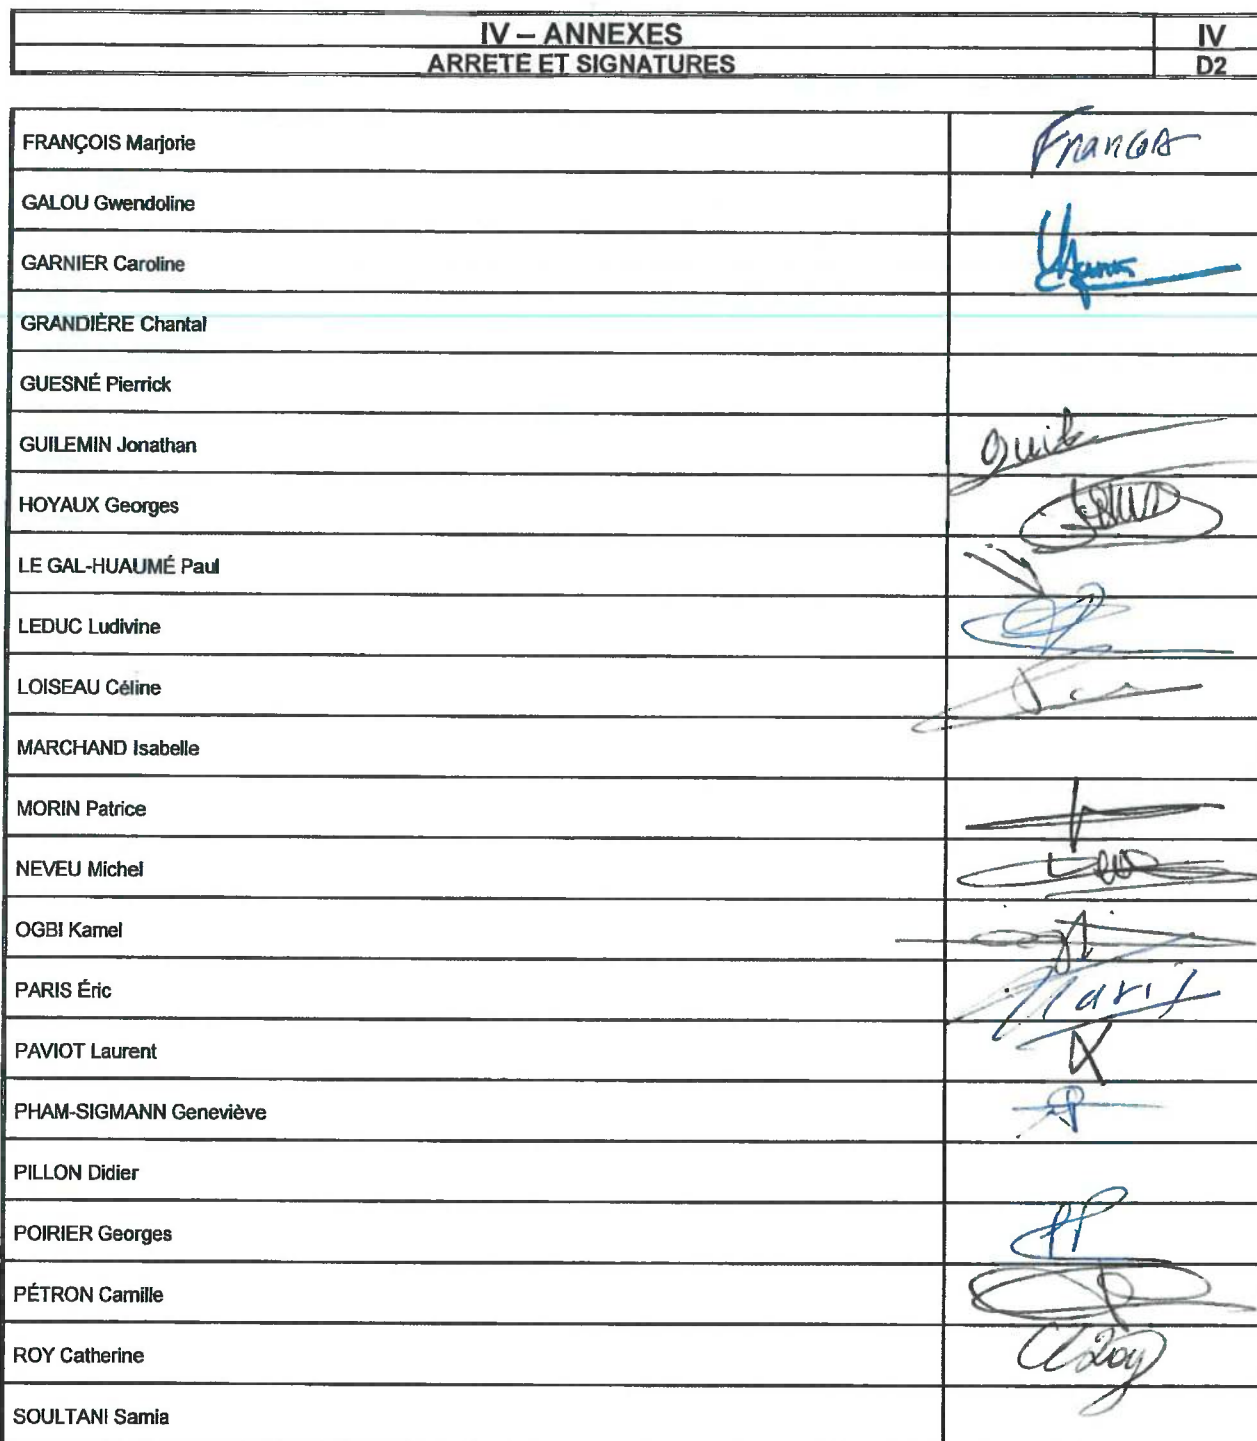 IV – ANNEXES
IV
ARRETE ET SIGNATURES
D2
FRANÇOIS Marjorie
GALOU Gwendoline
GARNIER Caroline
GRANDIÈRE Chantal
GUESNÉ Pierrick
GUILEMIN Jonathan
HOYAUX Georges
LE GAL-HUAUMÉ Paul
LEDUC Ludivine
LOISEAU Céline
MARCHAND Isabelle
MORIN Patrice
NEVEU Michel
OGBI Kamel
PARIS Éric
Paris
PAVIOT Laurent
PHAM-SIGMANN Geneviève
PILLON Didier
POIRIER Georges
PÉTRON Camille
ROY Catherine
SOULTANI Samia